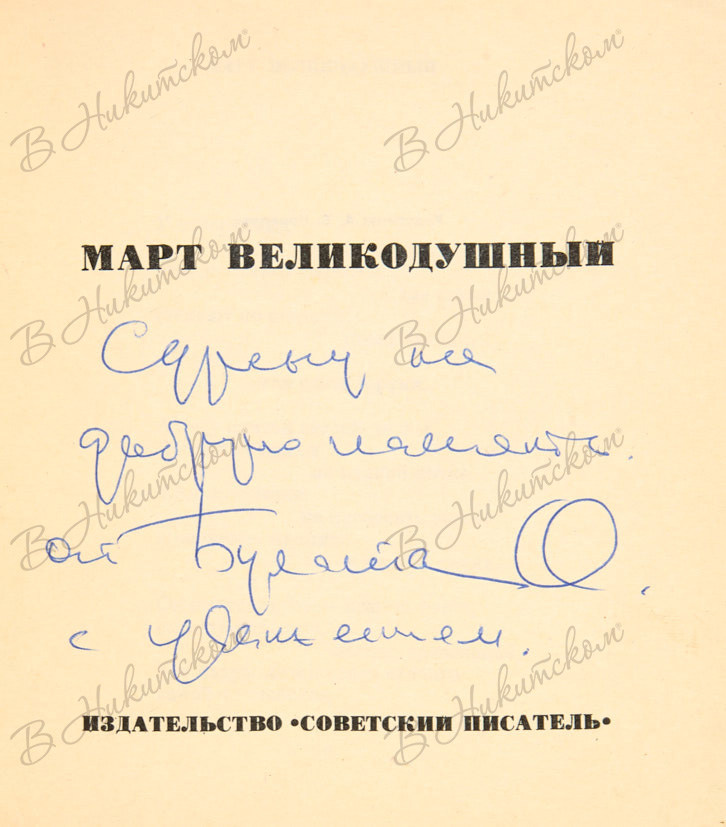 МАРТ ВЕЛИКОДУШНЫЙ
Сурену на
добрую память.
от Булата О.
с уважением.
ИЗДАТЕЛЬСТВО •СОВЕТСКИЙ ПИСАТЕЛЬ•
В Никитском
В Никитском
В Никитском
В Никитском
В Никитском
В Никитском
В Никитском
В Никитском